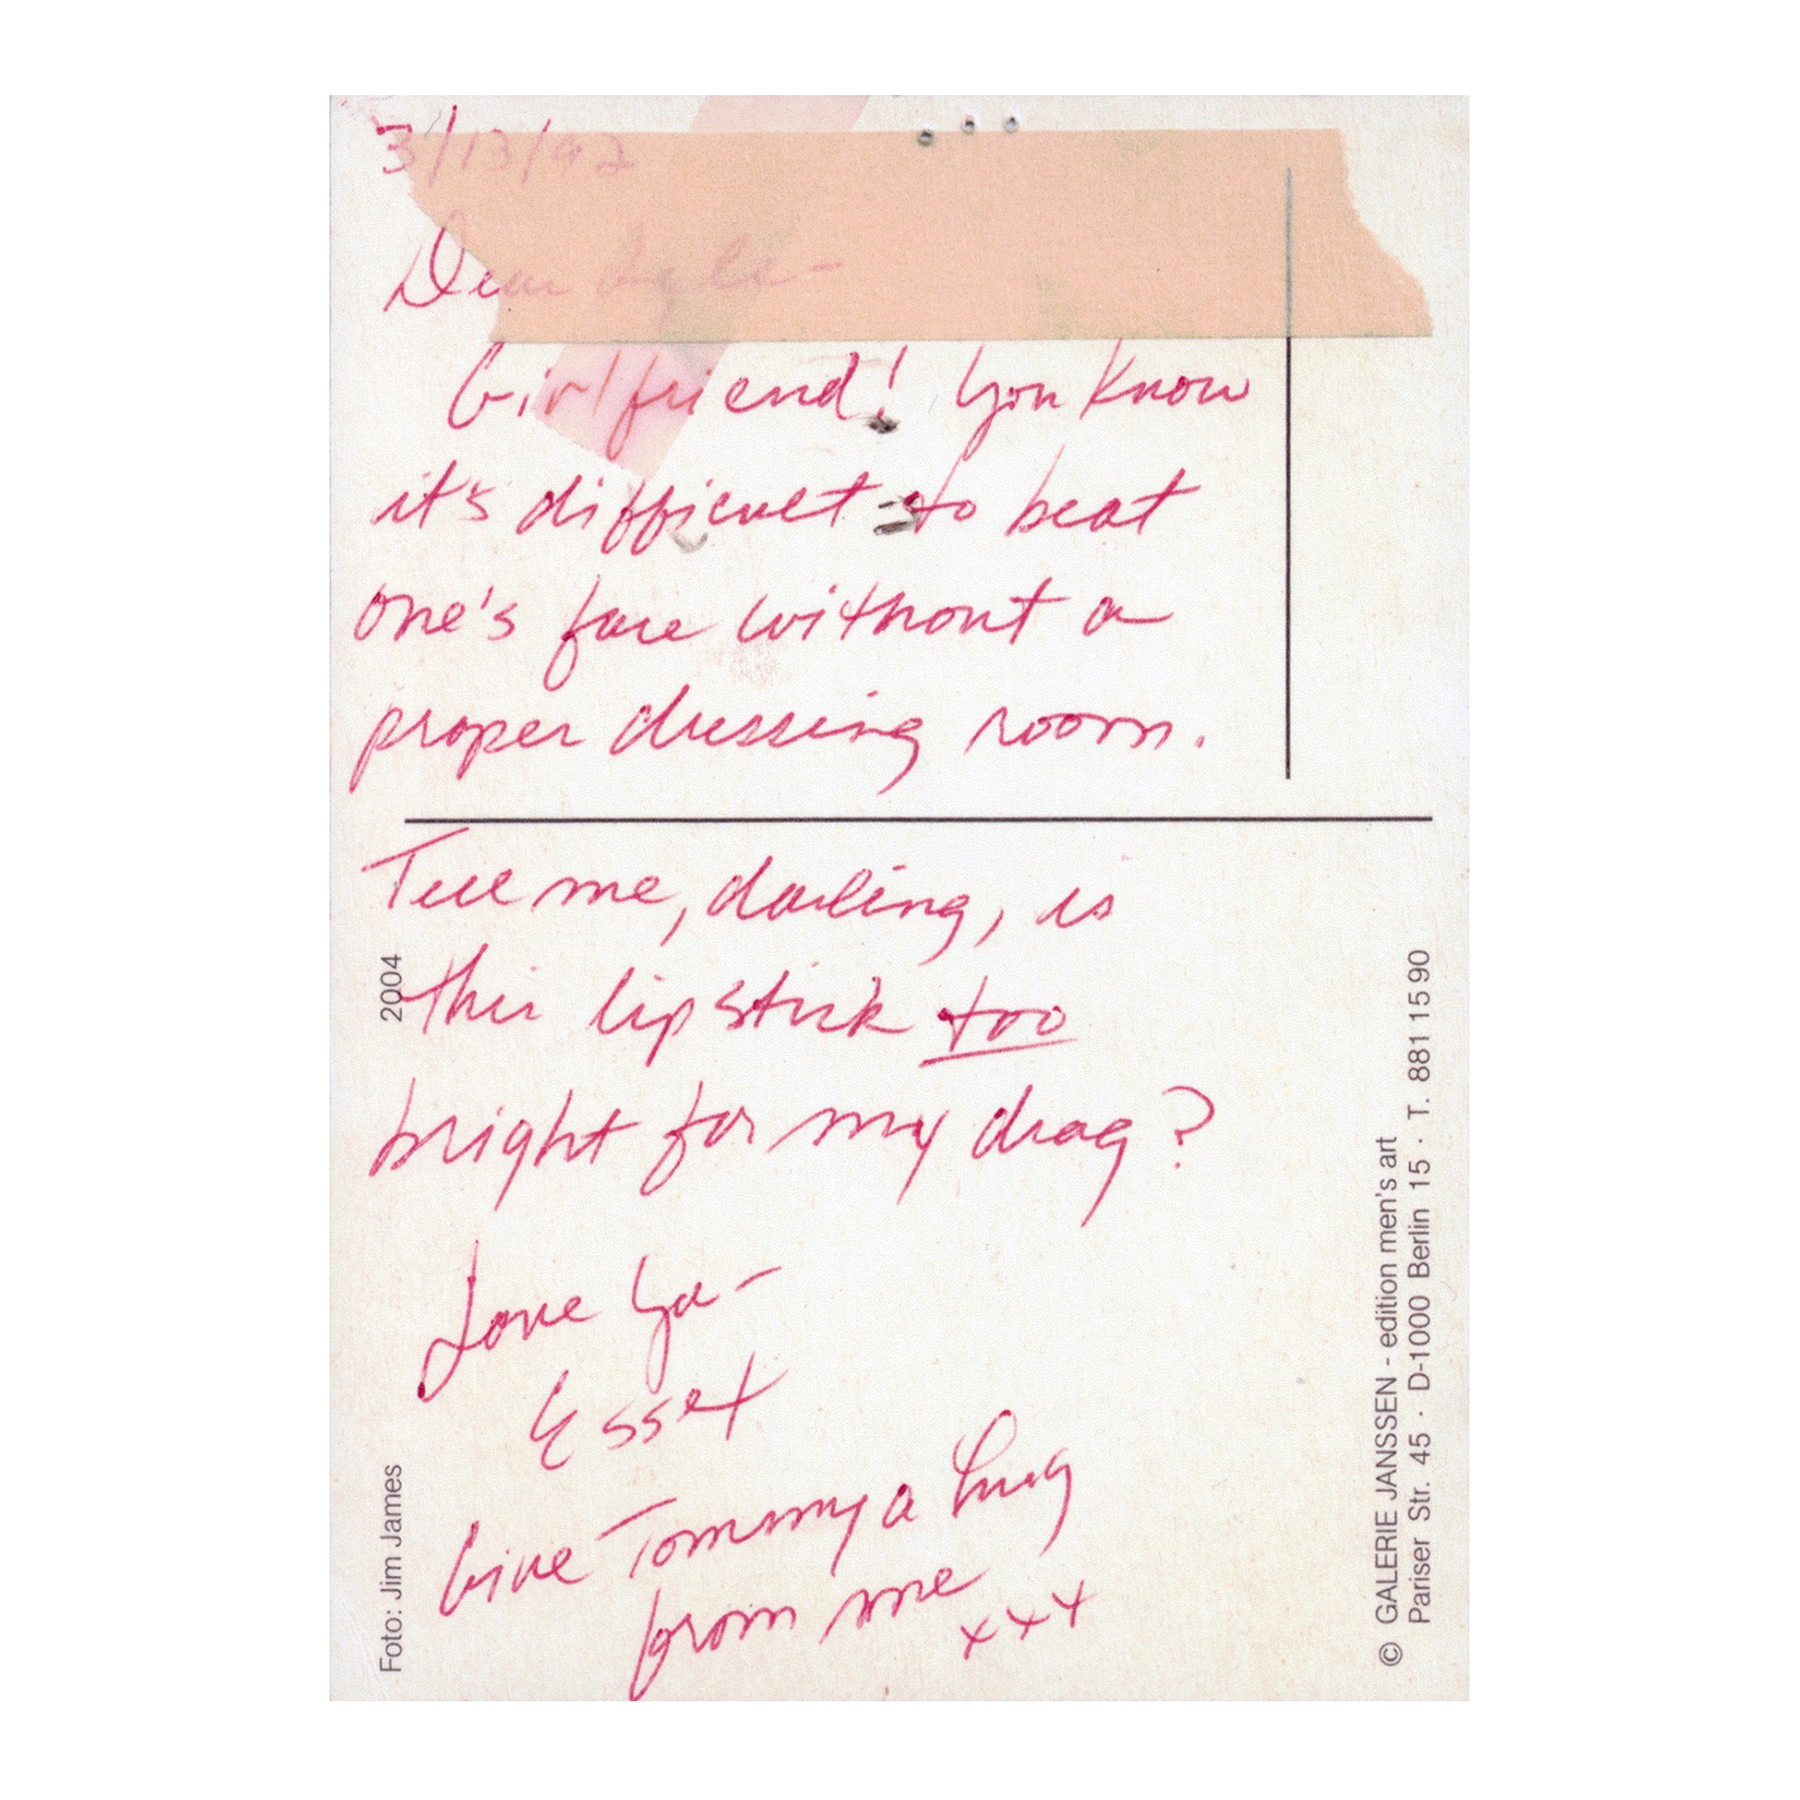 3/13/92
Dear
Girlfriend! You know
it's difficult to beat
one's face without a
proper dressing room.
Tell me, darling, is
this lipstick too
bright for my drag?
Love Ya-
Essex
Give Tommy a hug
from me
xxx
2004
Foto: Jim James
© GALERIE JANSSEN - edition men's art
Pariser Str. 45 · D-1000 Berlin 15 · T. 881 15 90